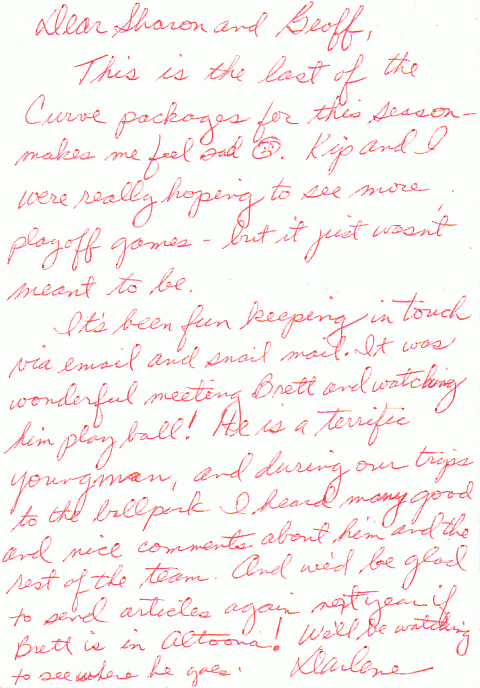 Dear Sharon and Geoff,
This is the last of the
Curve packages for this season-
makes me feel sad ☹. Kip and I
were really hoping to see more
playoff games - but it just wasn't
meant to be.
It's been fun keeping in touch
via email and snail mail. It was
wonderful meeting Brett and watching
him play ball! He is a terrific
young man, and during our trips
to the ballpark I heard many good
and nice comments about him and the
rest of the team. And we'd be glad
to send articles again next year if
Brett is in Altoona! We'll be watching
to see where he goes.
Darlene